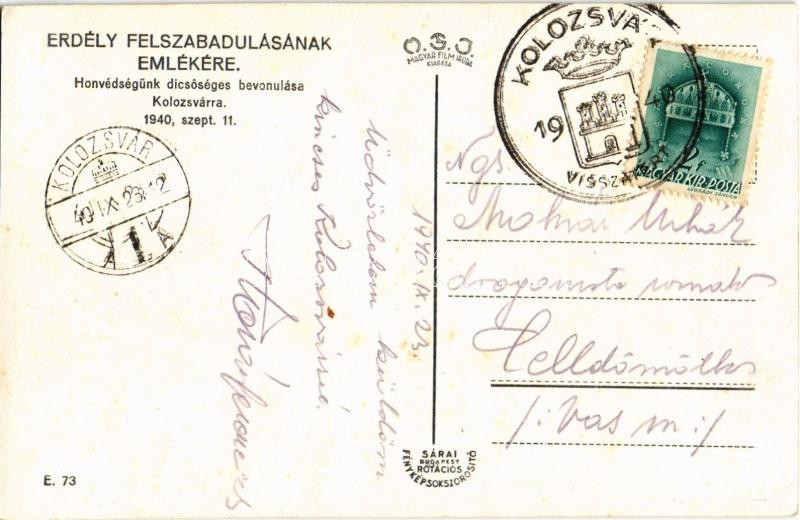 ERDÉLY FELSZABADULÁSÁNAK
EMLÉKÉRE.
Honvédségünk dicsőséges bevonulása
Kolozsvárra.
1940, szept. 11.
KOLOZSVÁR
40 IX 23 12
A 1 A
1940. IX. 23.
Üdvözletem küldöm
kincses Kolozsvárról.
E. 73
M.F.I.
MAGYAR FILM IRODA
KIADÁSA
SÁRAI
BUDAPEST
ROTÁCIÓS
FÉNYKÉPSOKSZOROSÍTÓ
KOLOZSVÁR
19 40
VISSZATÉRT
2f
MAGYAR KIR. POSTA
LÉGRÁDY SÁNDOR
Ngs.
Molnár
Celldömölk
/: Vas m :/